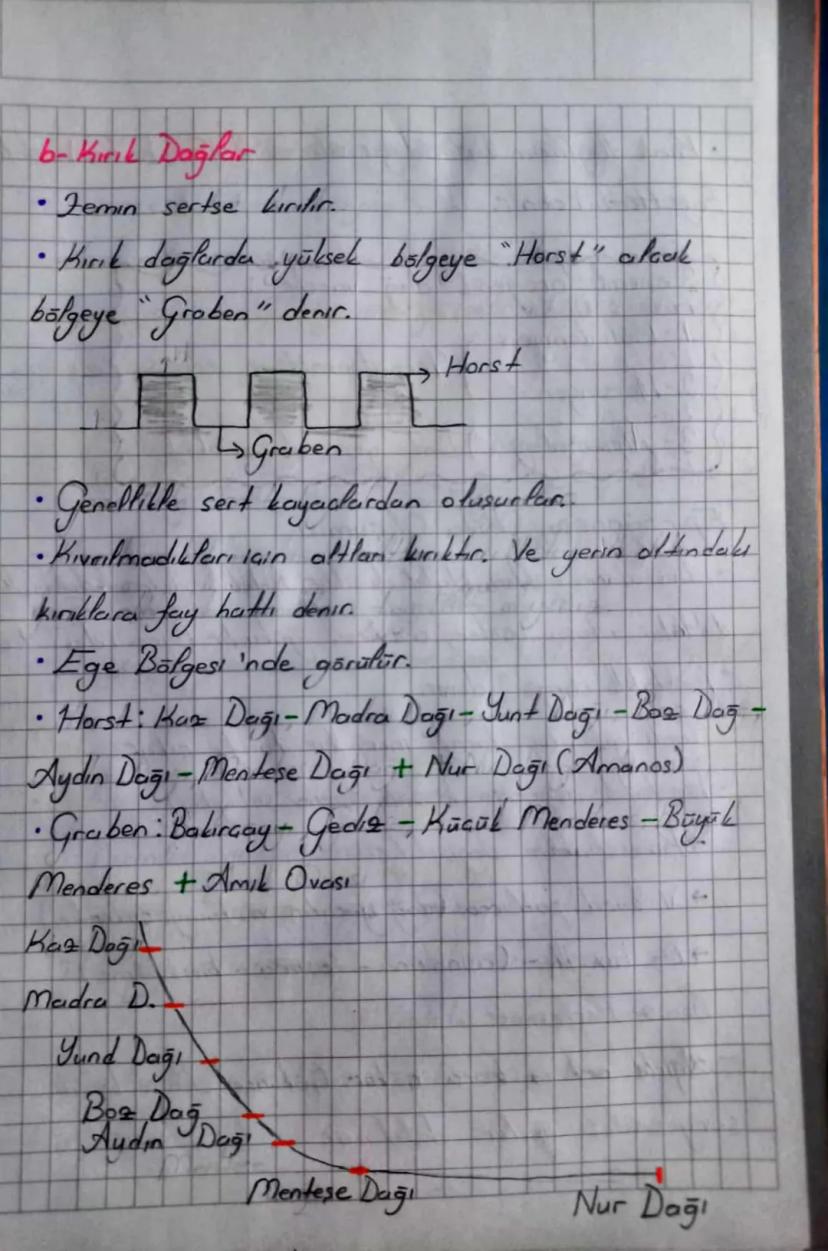 b- Kırık Dağlar
• Zemin sertse kırılır.
• Kırık dağlarda yüksek bölgeye "Horst" alçak
bölgeye "Graben" denir.
Horst
Graben
• Genellikle sert kayaçlardan oluşurlar.
• Kıvrılmadıkları için altları kırıktır. Ve yerin altındaki
kırıklara fay hattı denir.
• Ege Bölgesi'nde görülür.
• Horst: Kaz Dağı - Madra Dağı - Yunt Dağı - Boz Dağ -
Aydın Dağı - Menteşe Dağı + Nur Dağı (Amanos)
• Graben: Bakırçay - Gediz - Küçük Menderes - Büyük
Menderes + Amik Ovası
Kaz Dağı
Madra D.
Yund Dağı
Boz Dağ
Aydın Dağı
Menteşe Dağı
Nur Dağı